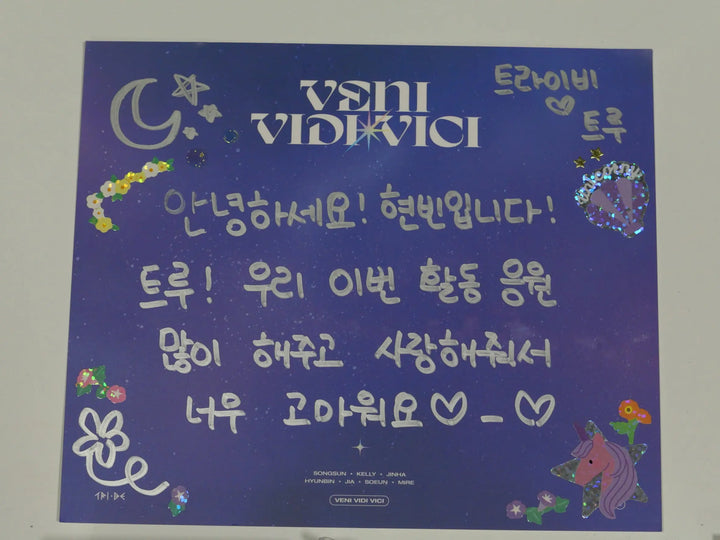 VENI
VIDI VICI
트라이비
트루
unicorn
안녕하세요! 현빈입니다!
트루! 우리 이번 활동 응원
많이 해주고 사랑해줘서
너무 고마워요♡_♡
SONGSUN • KELLY • JINHA
HYUNBIN • JIA • SOEUN • MIRE
VENI VIDI VICI
TRI·BE